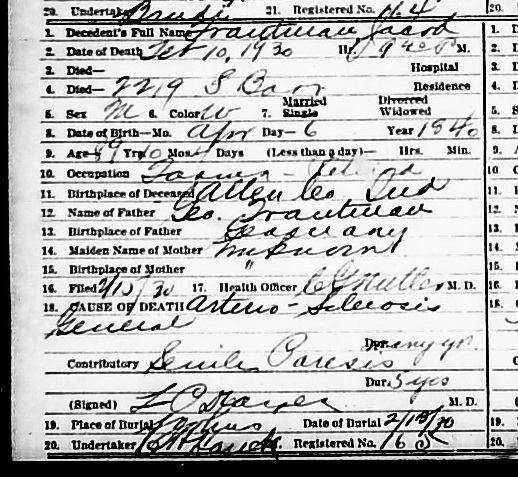 20. Undertaker 21. Registered No. 164 20.
1. Decedent's Full Name Trautman Jacob 1. D
2. Date of Death Feb 10, 1930 Hr. 9 40 P M. 2. D
3. Died— Hospital 3. D
4. Died— 2219 S Barr Residence 4. D
5. Sex M 6. Color W 7. Married Single Divorced Widowed 5. S
8. Date of Birth—Mo. Apr Day— 6 Year 1840 8. D
9. Age 89 Yrs 10 Mos 4 Days (Less than a day)— Hrs. Min. 9. A
10. Occupation Farmer - Retired 10.
11. Birthplace of Deceased Allen Co. Ind 11.
12. Name of Father Geo. Trautman 12.
13. Birthplace of Father Germany 13.
14. Maiden Name of Mother 14.
15. Birthplace of Mother " 15.
16. Filed 2/15/30 17. Health Officer M. D. 16.
18. CAUSE OF DEATH Arterio-Sclerosis 18.
General
Dur. many yr.
Contributory Senile Paresis
Dur. 5 yrs
(Signed) M. D.
19. Place of Burial Date of Burial 2/13/30 19.
20. Undertaker Registered No. 165 20.